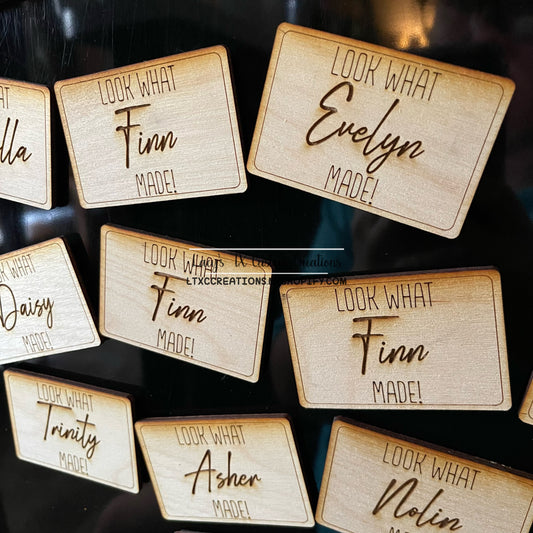 LOOK WHAT
Finn
MADE!
LOOK WHAT
Evelyn
MADE!
lla
LOOK WHAT
Daisy
MADE!
LOOK WHAT
Finn
MADE!
LOOK WHAT
Finn
MADE!
LOOK WHAT
Trinity
MADE!
LOOK WHAT
Asher
MADE!
LOOK WHAT
Nolin
TX
Creations